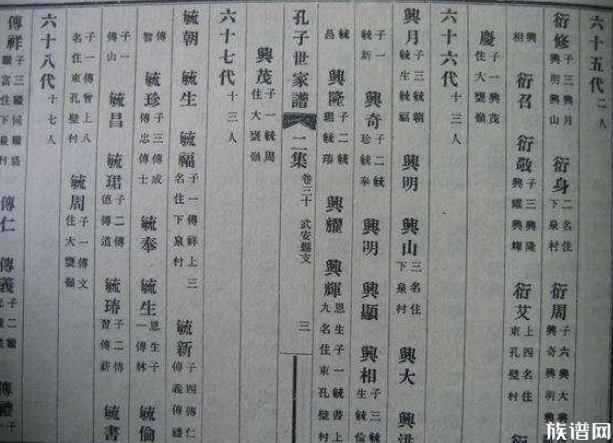 六十五代 二人
衍修 子三興月興明興山 衍身 二名住下泉村 衍周 子六興大興興奇興明興
興相 衍召 衍敬 子三興隆興耀興輝 衍艾 上四名住東孔壁村 衍
慶 子一興茂住大甕嶺
六十六代 十三人
興月 子三毓朝毓生毓福 興明 興山 三名住下泉村 興大 興洪
子一毓新 興奇 子二毓珍毓奉 興明 興顯 興相 子三毓生毓倫
毓昌 興隆 子二毓珺毓瑃 興耀 興輝 恩生子一毓書上九名住東孔壁村
孔子世家譜 二集 卷三十 武安縣支 三
興茂 子一毓周住大甕嶺
六十七代 十三人
毓朝 毓生 毓福 子一傳祥上三名住下泉村 毓新 子四傳仁傳義傳禮
傳智 毓珍 子三傳成傳忠傳士 毓奉 毓生 恩生子一傳林 毓倫
子一傳山 毓昌 毓珺 子二傳德傳道 毓瑃 子二傳習傳薪 毓書
子一傳曾上八名住東孔壁村 毓周 子一傳文住大甕嶺
六十八代 十七人
傳祥 子三繼繼盛繼富住下泉村 傳仁 傳義 子二繼 傳禮
族谱网